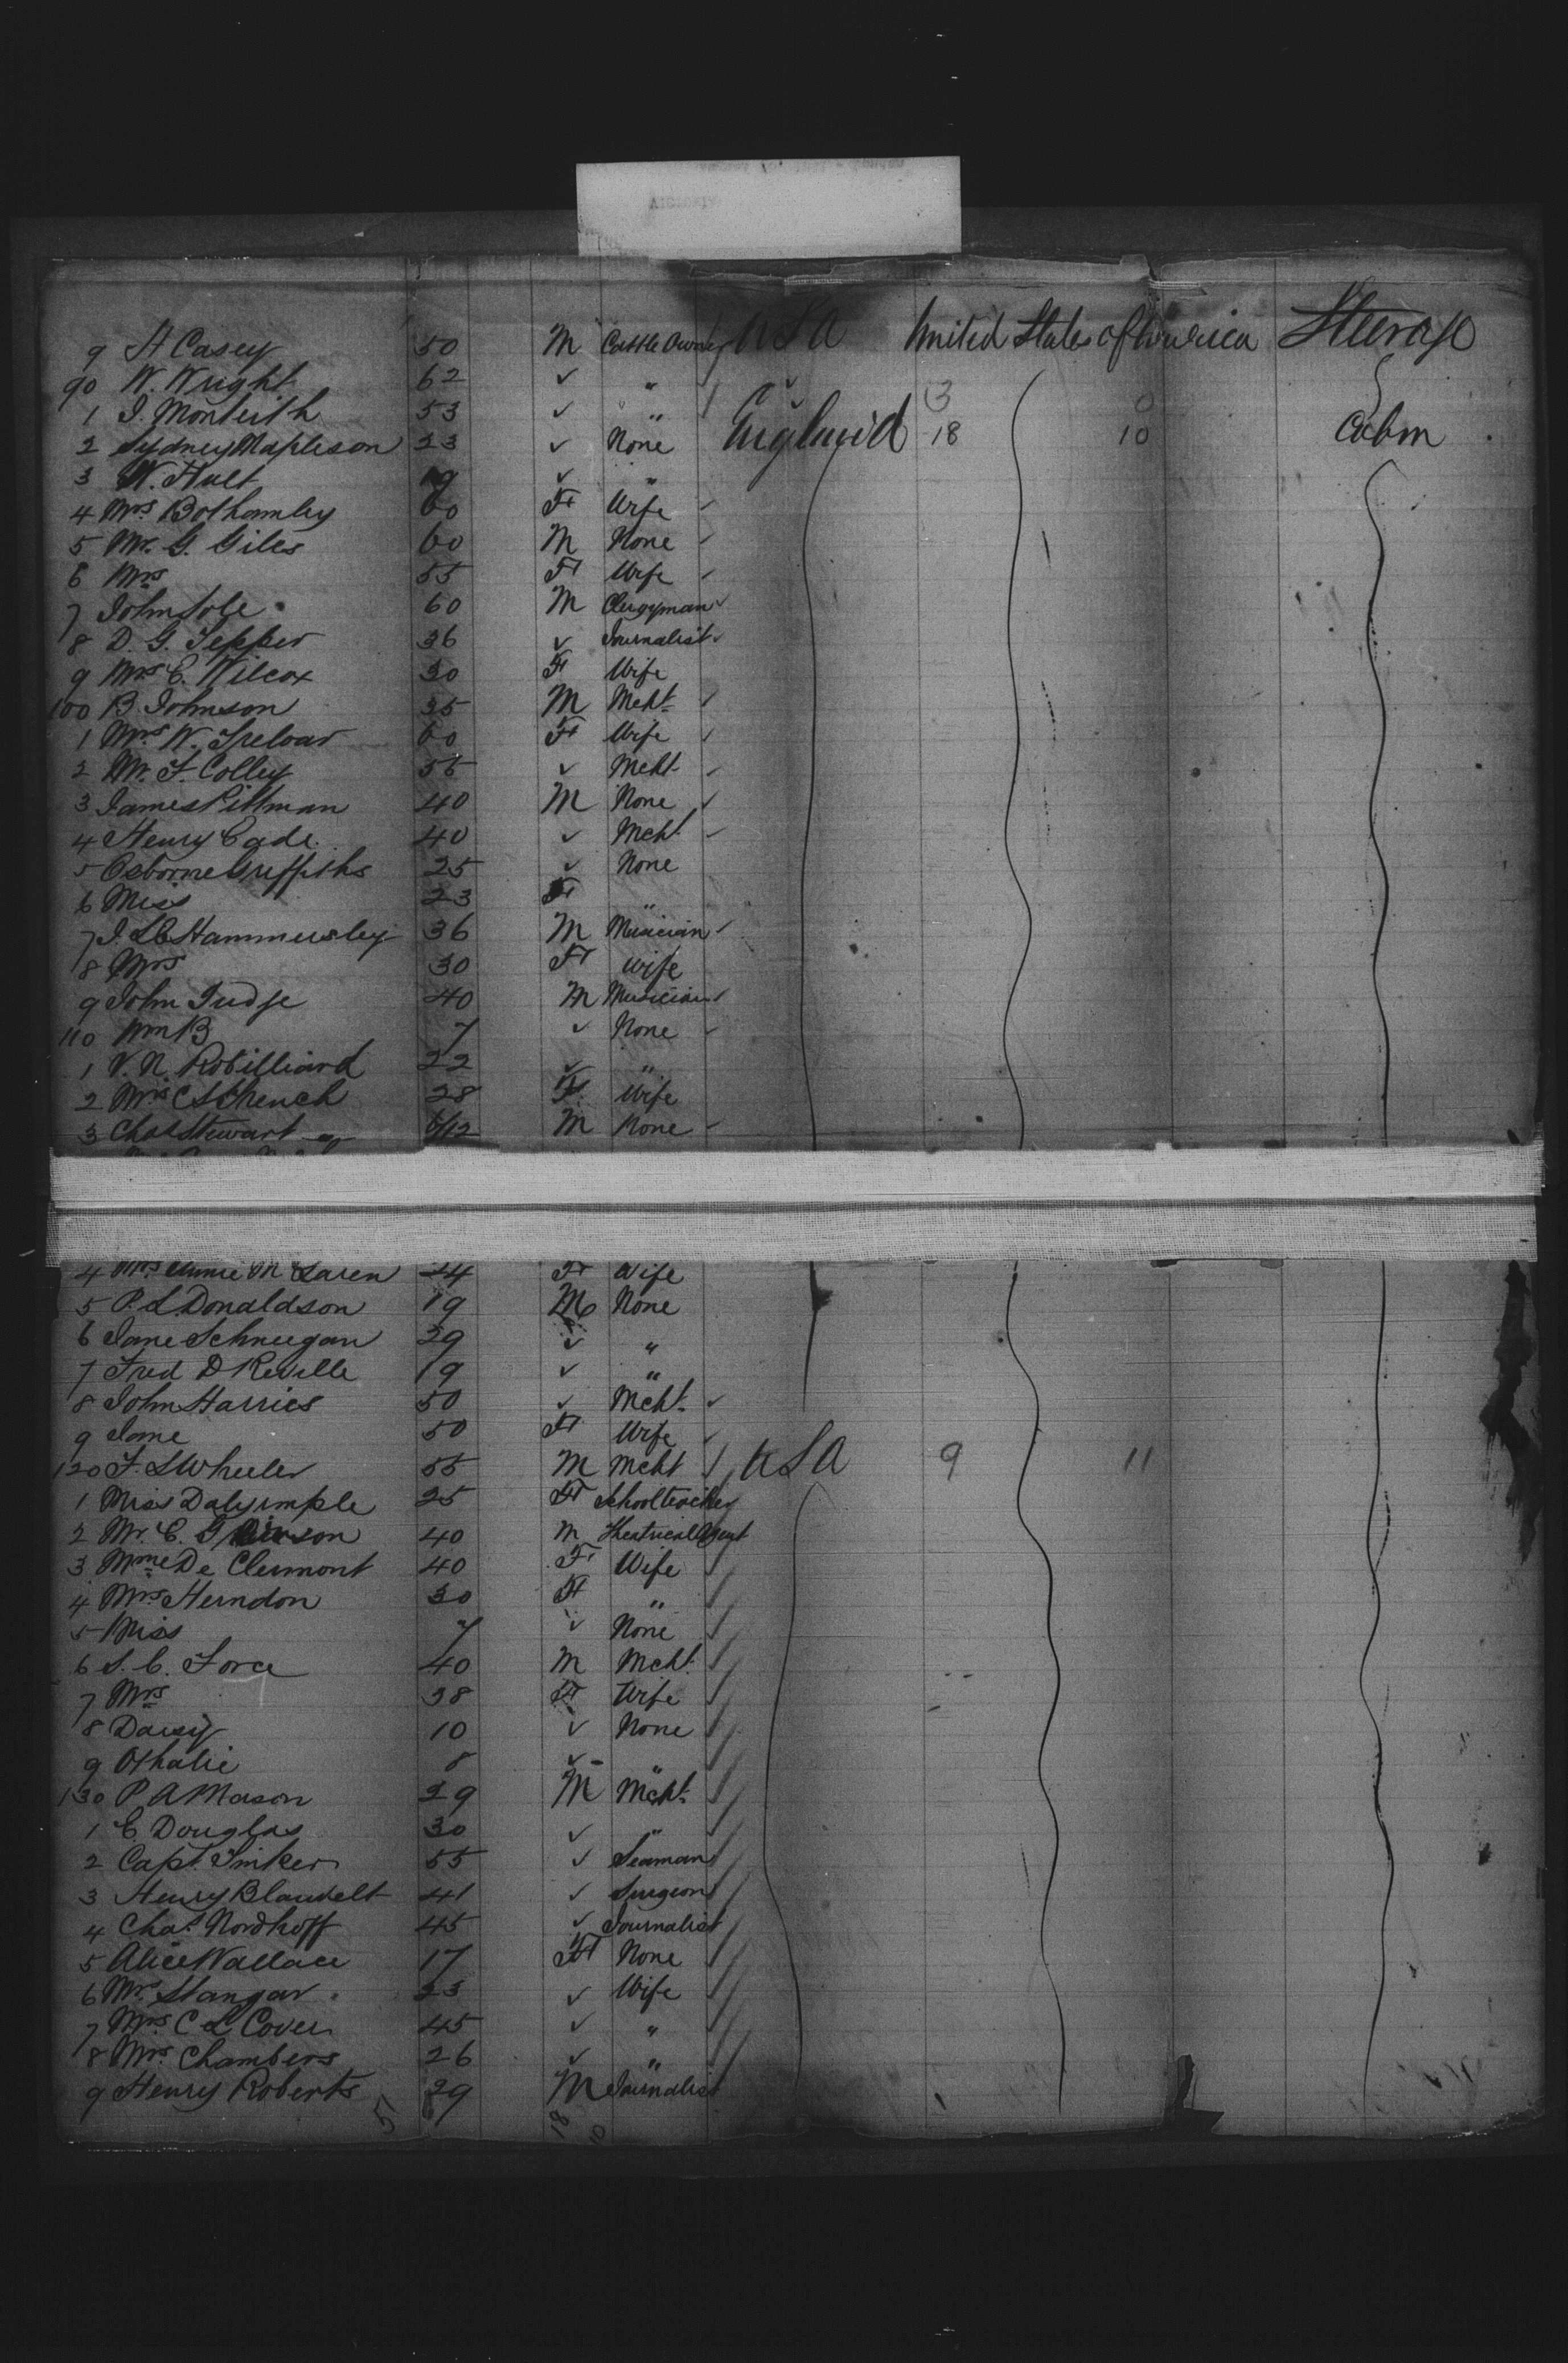 9 H Casey 50 M Cattle Owner USA United States of America Steerage
90 W. Wright 62 ✓ "
1 J. Monteith 53 ✓ " 3 0
2 Sydney Mapleson 23 ✓ None England 18 10 Cabin
3 W. Hult 19 ✓ "
4 Mrs Bothamley 60 F Wife
5 Mr. G. Giles 60 M None
6 Mrs 55 F Wife
7 John Sole 60 M Clergyman
8 D. G. Tepper 36 ✓ Journalist
9 Mrs C. Wilcox 30 F Wife
100 B. Johnson 35 M Mcht
1 Mrs W. Treloar 60 F Wife
2 Mr. F. Colley 56 ✓ Mcht
3 James Pittman 40 M None
4 Henry Cade 40 ✓ Mcht
5 Osborne Griffiths 25 ✓ None
6 Miss 23 F "
7 J. Hammersley 36 M Musician
8 Mrs 30 F Wife
9 John Judge 40 M Musician
110 Wm B 7 ✓ None
1 V. N. Robilliard 22 ✓ "
2 Mrs C Schenck 28 F. Wife
3 Chas Stewart 6/12 M None
4 Mrs Annie Mc Laren 24 F Wife
5 P. L. Donaldson 19 M None
6 Jane Schneegan 29 ✓ "
7 Fred D Reville 19 ✓ "
8 John Harries 50 ✓ Mcht.
9 Jane 50 F Wife
120 F. L Wheeler 55 M Mcht USA 9 11
1 Miss Dalyimple 25 F Schoolteacher
2 Mr. C. 40 M Theatrical Agent
3 Mme De Clermont 40 F Wife
4 Mrs Herndon 30 F "
5 Miss 7 ✓ None
6 S. C. Force 40 M Mcht.
7 Mrs 38 F Wife
8 Daisy 10 ✓ None
9 Othalie 8 ✓ "
130 P A Mason 29 M Mcht.
1 E. Douglas 30 ✓ "
2 Capt. Tinker 55 ✓ Seaman
3 Henry Blauvelt 41 ✓ Surgeon
4 Chas. Nordhoff 45 ✓ Journalist
5 Alice Wallace 17 F None
6 Mrs. Stangar 23 ✓ Wife
7 Mrs C L Cover 45 ✓ "
8 Mrs. Chambers 26 ✓ "
9 Henry Roberts 29 M Journalist
5 18 10